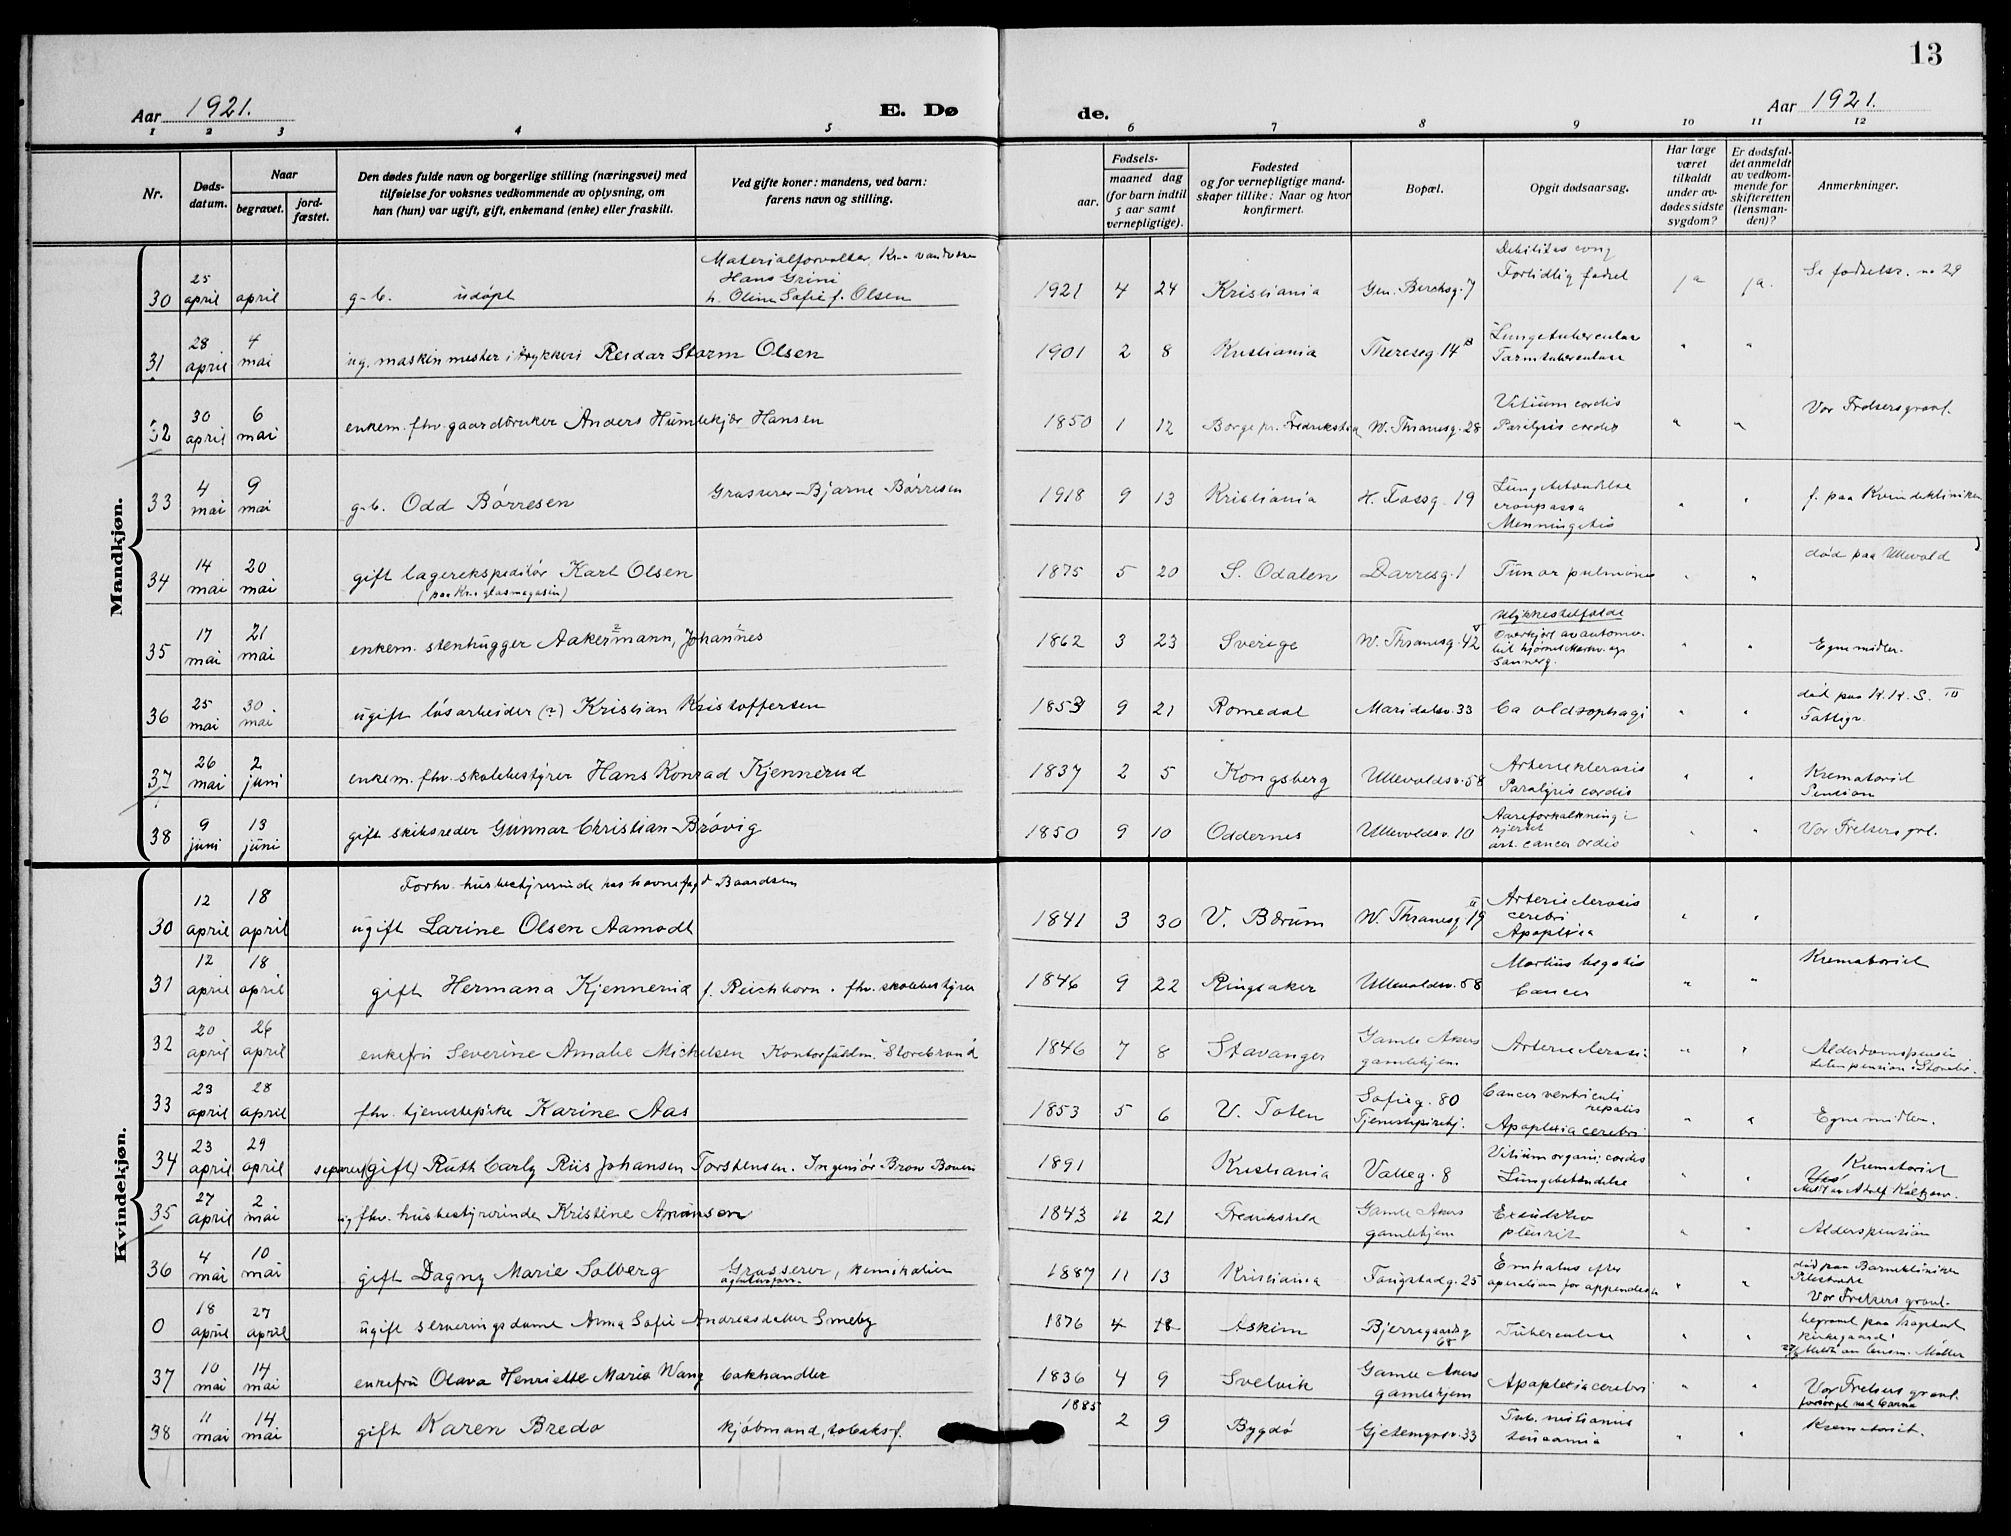 13
Aar 1921. E. Dø de. Aar 1921.
1 2 3 4 5 6 7 8 9 10 11 12
Nr. Døds-datum. Naar begravet. jord-fæstet. Den dødes fulde navn og borgerlige stilling (næringsvei) med tilføielse for voksnes vedkommende av oplysning, om han (hun) var ugift, gift, enkemand (enke) eller fraskilt. Ved gifte koner: mandens, ved barn: farens navn og stilling. Fødsels- aar. maaned dag (for barn indtil 5 aar samt vernepligtige). Fødested og for vernepligtige mandskaper tillike: Naar og hvor konfirmert. Bopæl. Opgit dødsaarsag. Har læge været tilkaldt under avdødes sidste sygdom? Er dødsfaldet anmeldt av vedkommende for skifteretten (lensmanden)? Anmerkninger.
Mandkjøn.
30 25 april april g-b. udøpt Materialforvalter, Kr.a vandvæsen Hans Grini h. Oline Sofie f. Olsen 1921 4 24 Kristiania Gen. Berchsg. 7 Debilitas cong Fortidlig født ja ja. Se fødselsr. no 29
31 28 april 4 mai ug. maskinmester i trykkeri Reidar Storm Olsen 1901 2 8 Kristiania Theresesg. 14 B Lungetuberculose Tarmtuberculose " "
32 30 april 6 mai enkem. fhv. gaardbruker Anders Humlekjær Hansen 1850 1 12 Borge pr. Fredrikstad W. Thranesg. 28 Vitium cordis Paralysis cordis " " Vor Frelsers gravl.
33 4 mai 9 mai g-b. Odd Børresen Grosserer Bjarne Børresen 1918 9 13 Kristiania H. Fossg. 19 Lungebetændelse crouposa Menningitis " " f. paa Kvindekliniken
34 14 mai 20 mai gift lagerekspeditør Karl Olsen (paa Kr.a glasmagasin) 1875 5 20 S. Odalen Darresg. 1 Tumor pulmones " " død paa Ullevold
35 17 mai 21 mai enkem. stenhugger Aakermann, Johannes 1862 3 23 Sverige W. Thranesg. 42 V Ulykkestilfælde Overkjørt av automobil hjørnet Markv. og Sannerg. " " Egne midler.
36 25 mai 30 mai ugift løsarbeider (?) Kristian Kristoffersen 1853 9 21 Romedal Maridalsv. 33 Ca oldsophagi " " død paa K.K.S. III Fattigv.
37 26 mai 2 juni enkem. fhv. skolebestyrer Hans Konrad Kjennerud 1837 2 5 Kongsberg Ullevoldsv. 58 Arterieklerosis Paralysis cordis " " Krematoriet Pension
38 9 juni 13 juni gift skibsreder Gunnar Christian Brøvig 1850 9 10 Oddernes Ullevoldsv. 10 Aareforkalkning i hjertet " " Vor Frelsers grl.
Kvindekjøn.
30 12 april 18 april Forhv. husbestyrerinde hos havnefogd Baardsen ugift Larine Olsen Aamodt 1841 3 30 V. Bærum W. Thranesg. 19 II Arteriesclerosis cerebri Apoplexia " "
31 12 april 18 april gift Hermana Kjennerud f. Reichborn. fhv. skolebestyrer 1846 9 22 Ringsaker Ullevoldsv. 58 Cancer " " Krematoriet
32 20 april 26 april enkefru Severine Amalie Michelsen Kontorfuldm. "Storebrand" 1846 7 8 Stavanger Gamle Akers gamlehjem Arteriesclerosis " " Alderdomspension Liten pension i Storebr.
33 23 april 28 april fhv. tjenestepike Karine Aas 1853 5 6 V. Toten Sofieg. 80 Tjenestepikehj. Cancer ventriculi Apoplexia cerebri " " Egne midler.
34 23 april 29 april separert (gift) Ruth Carly Riis Johansen Torstensen. Ingeniør Brow Boveri 1891 Kristiania Valleg. 8 Vitium organi. cordis Lungebetændelse " " Krematoriet
35 27 april 2 mai ug fhv. husbestyrerinde Kristine Amunsen 1843 11 21 Fredrikshald Gamle Akers gamlehjem Exsudativ pleurit " " Alderspension
36 4 mai 10 mai gift Dagny Marie Solberg Grosserer, kemikalier agenturforr. 1887 11 13 Kristiania Fougstadg. 25 Embolus efter operation for appendicit " " død paa Barneklinikken Pilestræde Vor Frelsers gravl.
0 18 april 27 april ugift serveringsdame Anna Sofie Andreasdatter Smeby 1876 4 18 Askim Bjerregaardsg 68 Tuberculose " " begravet paa Trøgstad kirkegaard
37 10 mai 14 mai enkefru Olava Henriette Marie Wang bokhandler 1836 4 9 Svelvik Gamle Akers gamlehjem Apoplexia cerebri " " Vor Frelsers gravl.
38 11 mai 14 mai gift Karen Bredo kjøbmand, tobaksf. 1885 2 9 Bygdø Gjetemyrsv. 33 " " Krematoriet.